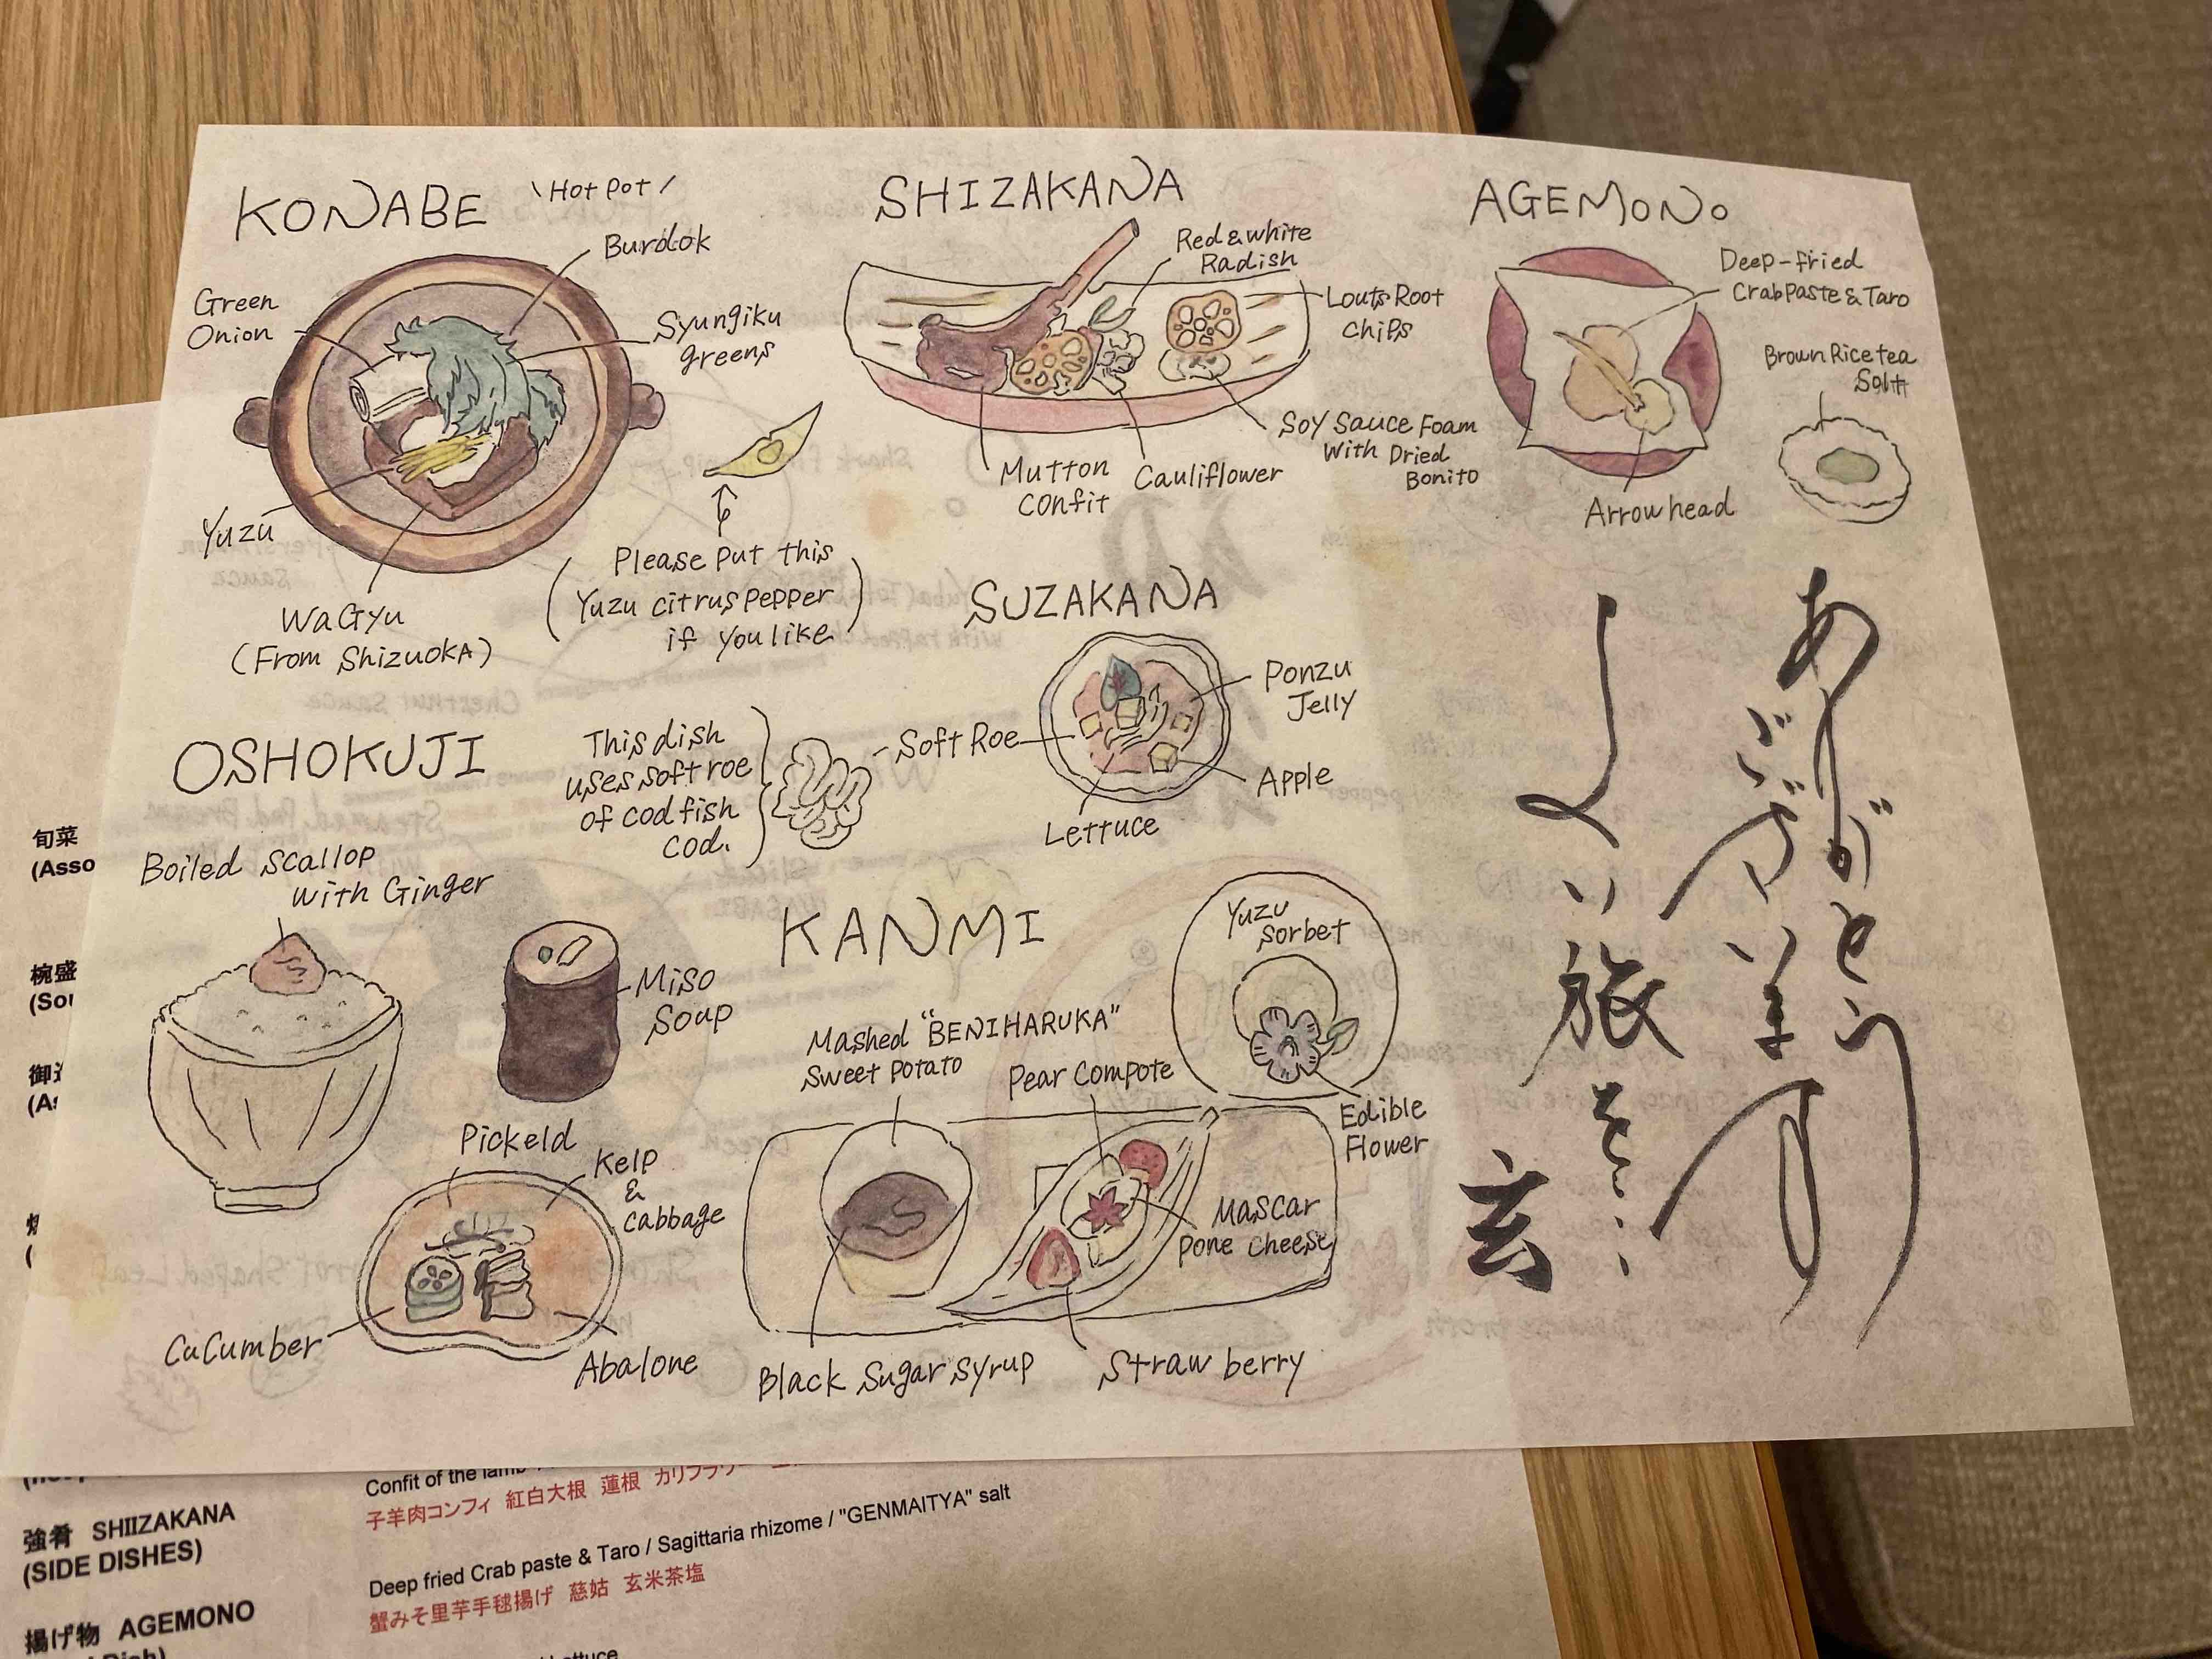 KONABE
\Hot Pot/
Burdok
Green
Onion
Syungiku
greens
Yuzu
WaGyu
(From Shizuoka)
Please Put this
Yuzu citrus PePPer
if you like
SHIZAKANA
Red & white
Radish
Louts Root
chips
Soy Sauce Foam
With Dried
Bonito
Mutton
confit
Cauliflower
AGEMONO
Deep-fried
Crab Paste & Taro
Brown Rice tea
Salt
Arrow head
SUZAKANA
Ponzu
Jelly
Soft Roe
Apple
Lettuce
This dish
uses soft roe
of cod fish
cod.
OSHOKUJI
Boiled scallop
with Ginger
Miso
Soup
Pickeld
Kelp
&
cabbage
CuCumber
Abalone
KANMI
Yuzu
Sorbet
Mashed "BENIHARUKA"
Sweet Potato
Pear Compote
Edible
Flower
Mascar
Pone cheese
Black Sugar Syrup
Straw berry
ありがとう
ございます
よい旅を…
玄
旬菜
(Asso
椀盛
(So
御
(As
Confit of the lamb
子羊肉コンフィ 紅白大根 蓮根 カリフラワー
強肴 SHIIZAKANA
(SIDE DISHES)
Deep fried Crab paste & Taro / Sagittaria rhizome / "GENMAITYA" salt
蟹みそ里芋手毬揚げ 慈姑 玄米茶塩
揚げ物 AGEMONO
Dish)
Lettuce